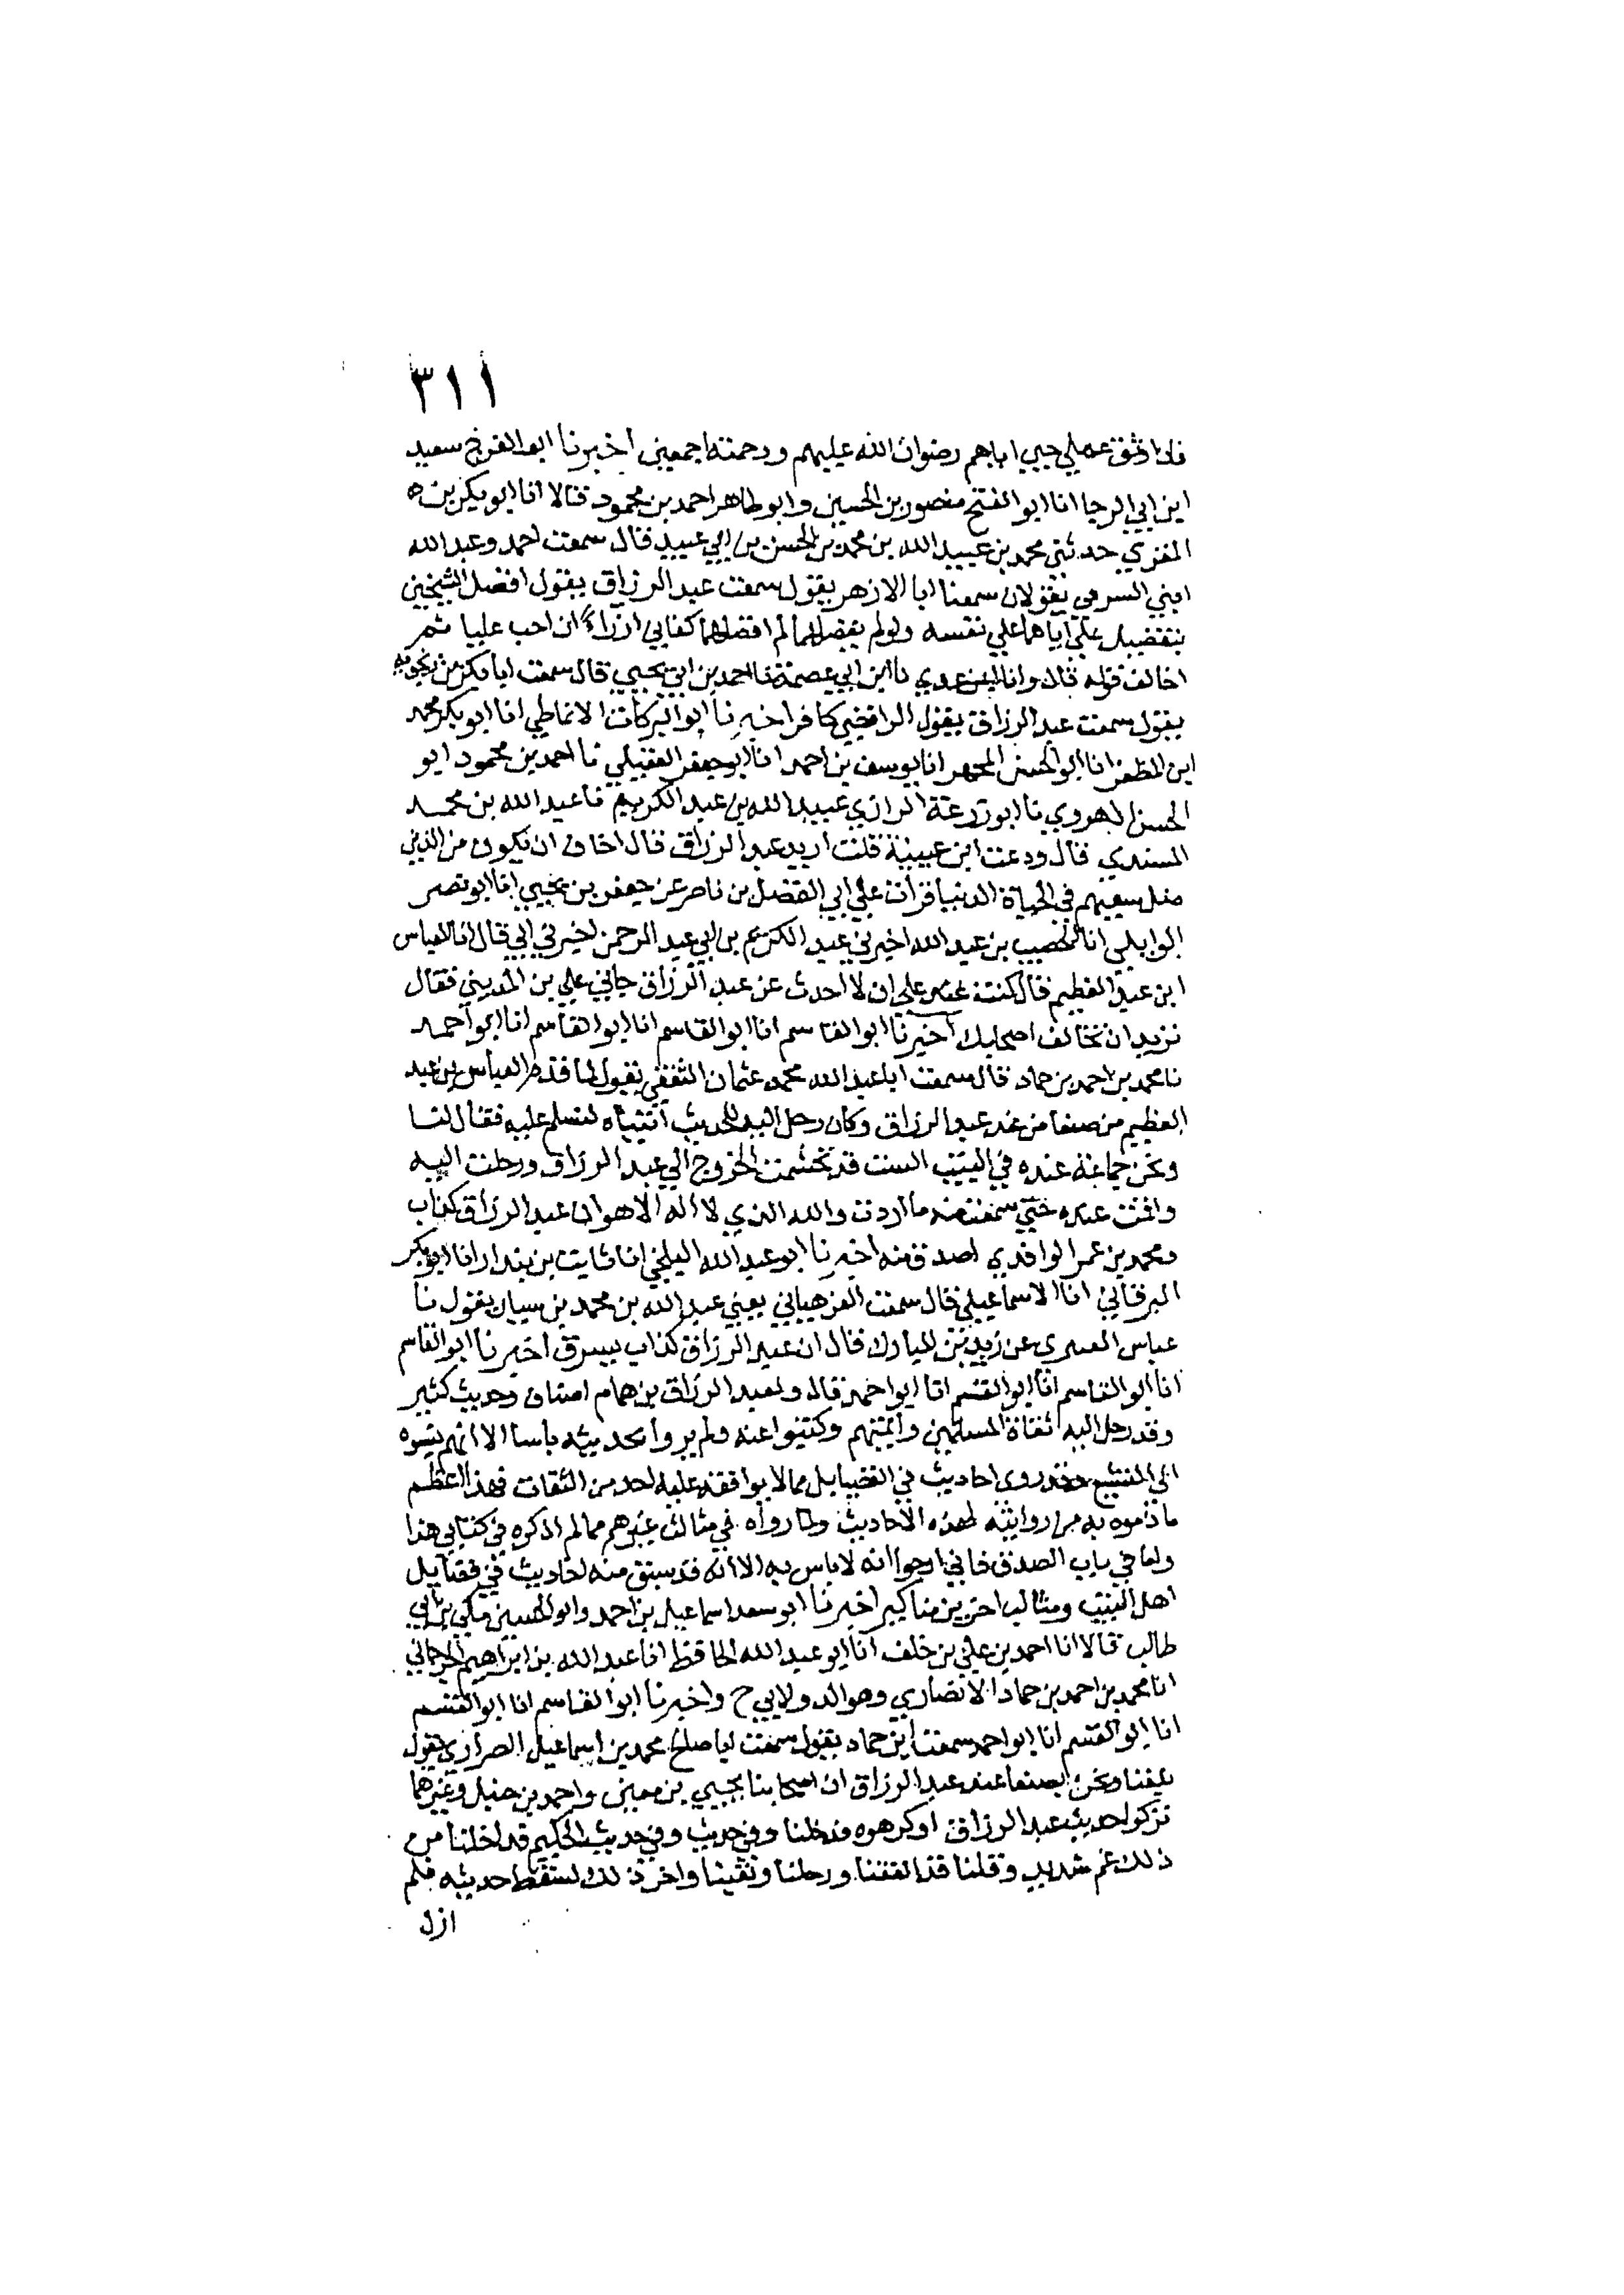 ٣١١
فان اوثق عملي حبي اياهم رضوان الله عليهم ورحمته اجمعين اخبرنا ابو الفرج سعيد
ابن ابي الرجا انا ابو الفتح منصور بن الحسين وابو طاهر احمد بن محمود قالا انا ابو بكر بن
المقري حدثني محمد بن عبيد الله بن محمد بن الحسن بن ابي عبيد قال سمعت احمد وعبد الله
ابني السرمي يقولان سمعنا ابا الازهر يقول سمعت عبد الرزاق يقول افضل الشيخين
بتفضيل علي اياهما علي نفسه ولو لم يفضلهما لم افضلهما كفابي ازراء ان احب عليا ثم
اخالف قوله قال وانا ابن عدي نا ابن ابي عصمة نا احمد بن ابي يحيي قال سمعت ابا بكر بن زنجويه
يقول سمعت عبد الرزاق يقول الرافضي كافر اخبرنا ابو البركات الانماطي انا ابو بكر محمد
ابن المظفر انا ابو الحسن المجهر انا يوسف بن احمد انا ابو جعفر العقيلي نا احمد بن محمود ابو
الحسن الهروي نا ابو زرعة الرازي عبيد الله بن عبد الكريم نا عبد الله بن محمد
المسندي قال ودعت ابن عيينة قلت اريد عبد الرزاق قال اخاف ان يكون من الذين
ضل سعيهم في الحياة الدنيا قرات علي ابي الفضل بن ناصر عن جعفر بن يحيي انا ابو نصر
الوايلي انا الخصيب بن عبد الله اخبرني عبد الكريم بن ابي عبد الرحمن اخبرني ابي قال انا العباس
ابن عبد العظيم قال كنت علي ان لا احدث عن عبد الرزاق جاني علي بن المديني فقال
تريد ان تخالف اصحابك اخبرنا ابو القاسم انا ابو القاسم انا ابو القاسم انا ابو احمد
نا محمد بن احمد بن حماد قال سمعت ابا عبد الله محمد عثمان الثقفي يقول لما قدم العباس بن عبد
العظيم من صنعا من عند عبد الرزاق وكان رحل اليه للحديث اتيناه لنسلم عليه فقال لنا
ونحن جماعة عنده في البيت الست قد تجشمت الخروج الي عبد الرزاق ورحلت اليه
واقمت عنده حتي سمعت منه ما اردت والله الذي لا اله الا هو ان عبد الرزاق كذاب
ومحمد بن عمر الواقدي اصدق منه اخبرنا ابو عبد الله البلخي انا ثابت بن بندار انا ابو بكر
البرقاني انا الاسماعيلي قال سمعت الفرهياني يعني عبد الله بن محمد بن سيار يقول نا
عباس العنبري عن زيد بن المبارك قال ان عبد الرزاق كذاب يسرق اخبرنا ابو القاسم
انا ابو القاسم انا ابو القسم انا ابو احمد قال ولعبد الرزاق بن همام اصناف وحديث كثير
وقد رحل اليه ثقات المسلمين وايمتهم وكتبوا عنه ولم يروا بحديثه باسا الا انهم نسبوه
الي التشيع وقد روي احاديث في الفضايل مما لا يوافقه عليه احد من الثقات فهذا اعظم
ما ذموه به من روايته لهذه الاحاديث ولما رواه في مثالب غيرهم مما لم اذكره في كتابي هذا
واما في باب الصدق فاني ارجوا انه لا باس به الا انه قد سبق منه احاديث في فضايل
اهل البيت ومثالب اخرين مناكير اخبرنا ابو سعد اسماعيل بن احمد وابو الحسن مكي بن ابي
طالب قالا انا احمد بن علي بن خلف انا ابو عبد الله الحافظ انا عبد الله بن ابراهيم الجرجاني
انا محمد بن احمد بن حماد الانصاري وهو الدولابي ح واخبرنا ابو القاسم انا ابو القسم
انا ابو القسم انا ابو احمد سمعت ابن حماد يقول سمعت ابا صالح محمد بن اسماعيل الصراري يقول
بلغنا ونحن بصنعا عند عبد الرزاق ان اصحابنا يحيي بن معين واحمد بن حنبل وغيرهما
تركوا حديث عبد الرزاق او كرهوه فدخلنا من
ذلك غم شديد وقلنا قد انفقنا ورحلنا وتعبنا واخر ذلك سقط حديثه فلم
ازل